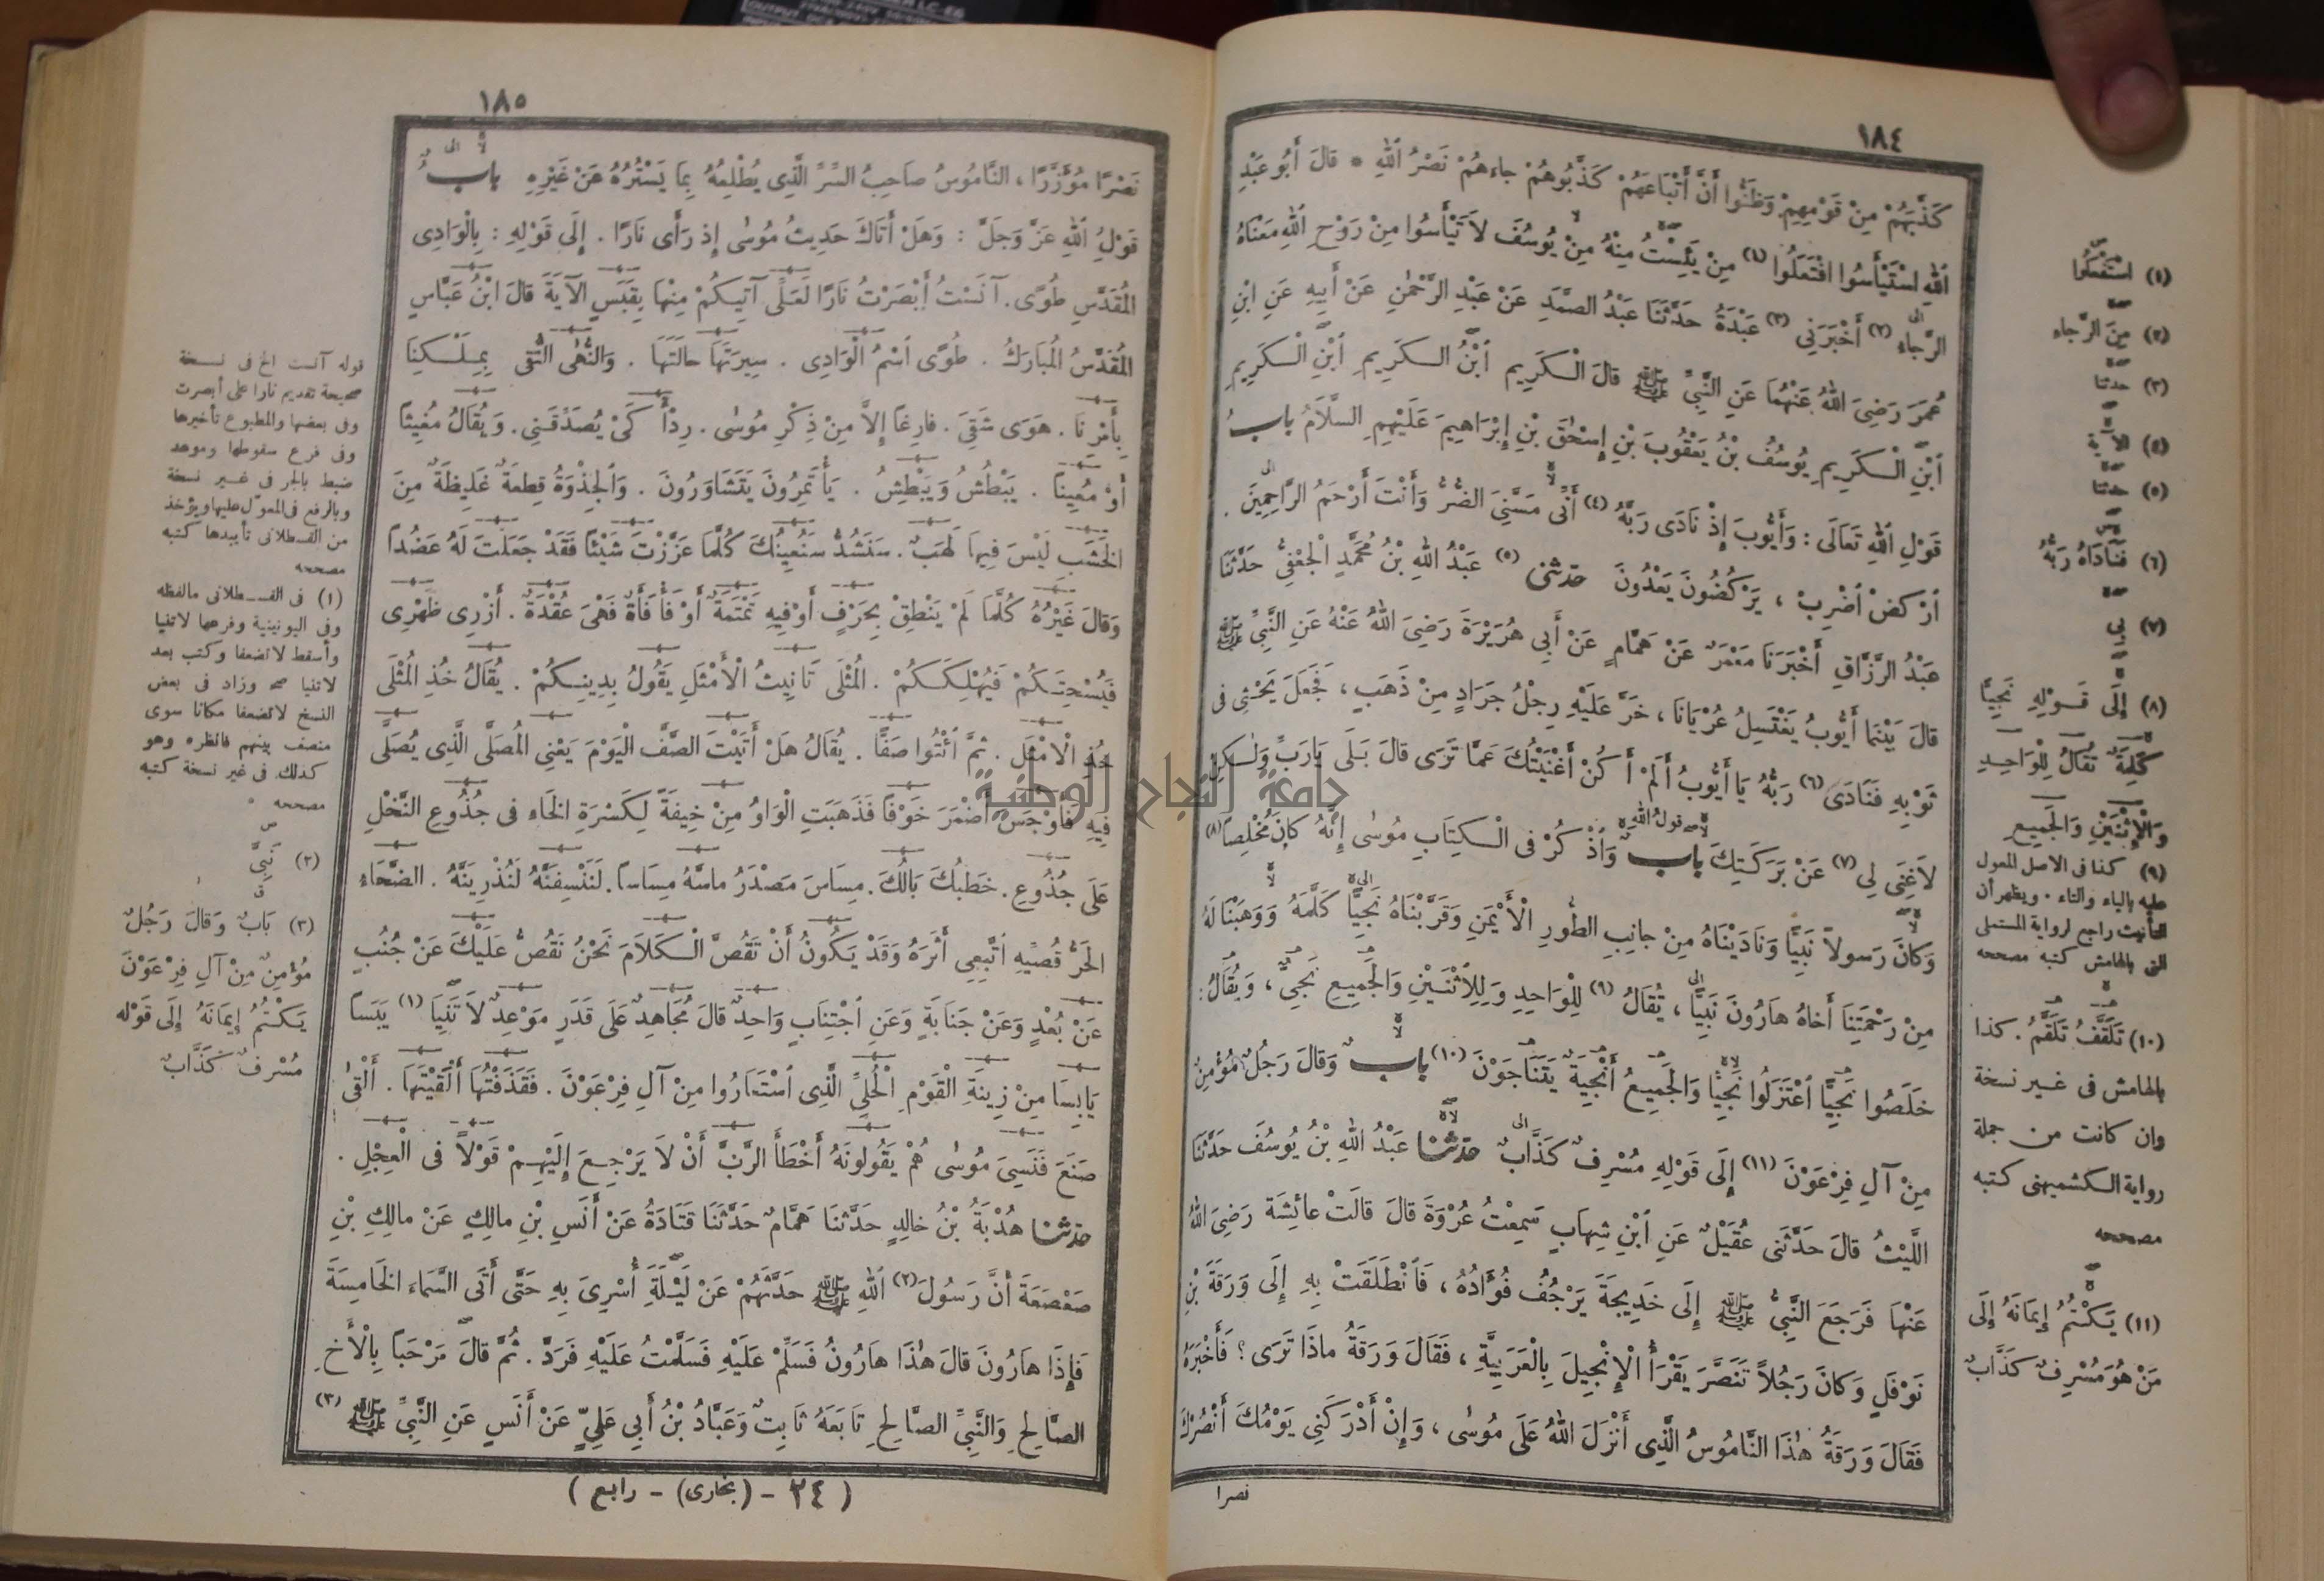 ١٨٤
كَذَّبَهُمْ مِنْ قَوْمِهِمْ وَظَنُّوا أَنَّ أَتْبَاعَهُمْ كَذَّبُوهُمْ جاءهُمْ نَصْرُ اللهِ * قالَ أَبُو عَبْدِ
اللهِ اسْتَيْأَسُوا افْتَعَلُوا (١) مِنْ يَئِسْتُ مِنْهُ مِنْ يُوسُفَ لاَ تَيْأَسُوا مِنْ رَوْحِ اللهِ مَعْنَاهُ
الرَّجاءِ (٢) أَخْبَرَنِي (٣) عَبْدَةُ حَدَّثَنَا عَبْدُ الصَّمَدِ عَنْ عَبْدِ الرَّحْمٰنِ عَنْ أَبِيهِ عَنِ ابْنِ
عُمَرَ رَضِيَ اللهُ عَنْهُمَا عَنِ النَّبِيِّ ﷺ قالَ الْكَرِيمِ ابْنُ الْكَرِيمِ ابْنِ الْكَرِيمِ
ابْنِ الْكَرِيمِ يُوسُفُ بْنُ يَعْقُوبَ بْنِ إِسْحٰقَ بْنِ إِبْرَاهِيمَ عَلَيْهِمِ السَّلاَمُ بابُ
قَوْلِ اللهِ تَعَالَى : وَأَيُّوبَ إِذْ نَادَى رَبَّهُ (٤) أَنِّى مَسَّنِيَ الضُّرُّ وَأَنْتَ أَرْحَمُ الرَّاحِمِينَ .
ارْكُضْ اضْرِبْ ، يَرْكُضُونَ يَعْدُونَ حدثنى (٥) عَبْدُ اللهِ بْنُ مُحَمَّدٍ الْجُعْفِيُّ حَدَّثَنَا
عَبْدُ الرَّزَّاقِ أَخْبَرَنَا مَعْمَرٌ عَنْ هَمَّامٍ عَنْ أَبِي هُرَيْرَةَ رَضِيَ اللهُ عَنْهُ عَنِ النَّبِيِّ ﷺ
قالَ بَيْنَمَا أَيُّوبُ يَغْتَسِلُ عُرْيَانًا ، خَرَّ عَلَيْهِ رِجْلُ جَرَادٍ مِنْ ذَهَبٍ ، فَجَعَلَ يَحْثِى فى
ثَوْبِهِ فَنَادَى (٦) رَبُّهُ يَا أَيُّوبُ أَلَمْ أَكُنْ أَغْنَيْتُكَ عَمَّا تَرَى قالَ بَلَى يَارَبِّ وَلٰكِنْ
لاَغِنَى لِى (٧) عَنْ بَرَكَتِكَ باب قولُ اللهِ وَاذْكُرْ فى الْكِتَابِ مُوسٰى إِنَّهُ كانَ مُخْلِصاً (٨)
وَكانَ رَسولاً نَبِيًّا وَنَادَيْنَاهُ مِنْ جانِبِ الطُّورِ الْأَيْمَنِ وَقَرَّبْنَاهُ نَجِيًّا كَلَّمَهُ وَوَهَبْنَا لَهُ
مِنْ رَحْمَتِنَا أَخاهُ هارُونَ نَبِيًّا ، يُقَالُ (٩) لِلْوَاحِدِ وَلِلاِثْنَيْنِ وَالجَمِيعِ نَجِيٌّ ، وَيُقَالُ :
خَلَصُوا نَجِيًّا اعْتَزَلُوا نَجِيًّا وَالجَمِيعُ أَنْجِيَةٌ يَتَنَاجَوْنَ (١٠) بابٌ وَقالَ رَجُلٌ مُؤْمِنٌ
مِنْ آلِ فِرْعَوْنَ (١١) إِلَى قَوْلِهِ مُسْرِفٌ كَذَّابٌ حدثنا عَبْدُ اللهِ بْنُ يُوسُفَ حَدَّثَنَا
اللَّيْثُ قالَ حَدَّثَنى عُقَيْلٌ عَنِ ابْنِ شِهابٍ سَمِعْتُ عُرْوَةَ قالَ قالَتْ عائِشَةُ رَضِيَ اللهُ
عَنْهَا فَرَجَعَ النَّبِيُّ ﷺ إِلَى خَدِيجَةَ يَرْجُفُ فُؤَادُهُ ، فَانْطَلَقَتْ بِهِ إِلَى وَرَقَةَ بْنِ
نَوْفَلٍ وَكانَ رَجُلاً تَنَصَّرَ يَقْرَأُ الْإِنْجِيلَ بِالْعَرَبِيَّةِ ، فَقَالَ وَرَقَةُ ماذَا تَرَى ؟ فَأَخْبَرَهُ
فَقَالَ وَرَقَةُ هٰذَا النَّامُوسُ الَّذِى أَنْزَلَ اللهُ عَلَى مُوسٰى ، وَإِنْ أَدْرَكَنِي يَوْمُكَ أَنْصُرْكَ
نصرا
(١) اسْتَفْعَلُوا
(٢) مِنَ الرَّجاءِ
(٣) حدثنا
(٤) الآيَةَ
(٥) حدثنا
(٦) فَنَادَاهُ رَبُّهُ
(٧) بِي
(٨) إِلَى قَوْلِهِ نَجِيًّا
كَلِمَةٌ تُقَالُ لِلْوَاحِدِ
وَالْإِثْنَيْنِ وَالجَمِيعِ
(٩) كذا فى الاصل المعول
عليه بالياء والتاء . ويظهر أن
التأنيث راجع لرواية المستملى
التى بالهامش كتبه مصححه
(١٠) تَلَقَّفُ تَلَقَّمُ . كذا
بالهامش فى غير نسخة
وان كانت من جملة
رواية الكشميهنى كتبه
مصححه
(١١) يَكْتُمُ إِيمَانَهُ إِلَى
مَنْ هُوَ مُسْرِفٌ كَذَّابٌ
١٨٥
نَصْرًا مُؤَزَّرًا ، النَّامُوسُ صاحِبُ السِّرِّ الَّذِى يُطْلِعُهُ بِمَا يَسْتُرُهُ عَنْ غَيْرِهِ بابُ
قَوْلُ اللهِ عَزَّ وَجَلَّ : وَهَلْ أَتَاكَ حَدِيثُ مُوسٰى إِذ رَأَى نَارًا . إِلَى قَوْلِهِ : بِالْوَادِى
المُقَدَّسِ طُوًى . آنَسْتُ أَبْصَرْتُ نَارًا لَعَلِّى آتِيكُمْ مِنْهَا بِقَبَسٍ الآيَةَ قالَ ابْنُ عَبَّاسٍ
المُقَدَّسُ المُبَارَكُ . طُوًى اسْمُ الْوَادِى . سِيرَتَهَا حالَتَهَا . وَالنُّهٰى التُّقٰى بِمِلْكِنَا
بِأَمْرِنَا . هَوَى شَقِيَ . فارِغًا إِلاَّ مِنْ ذِكْرِ مُوسٰى . رِدْأً كَىْ يُصَدِّقَنِى . وَيُقَالُ مُغِيثًا
أَوْ مُعِينًا . يَبْطُشُ وَيَبْطِشُ . يَأْتَمِرُونَ يَتَشَاوَرُونَ . وَالْجِذْوَةُ قِطعَةٌ غَلِيظَةٌ مِنَ
الخَشَبِ لَيْسَ فِيهَا لَهَبٌ . سَنَشُدُّ سَنُعِينُكَ كُلَّمَا عَزَّزْتَ شَيْئًا فَقَدْ جَعَلْتَ لَهُ عَضُدًا
وَقالَ غَيْرُهُ كُلَّمَا لَمْ يَنْطِقْ بِحَرْفٍ أَوْ فِيهِ تَمْتَمَةٌ أَوْ فَأْفَأَةٌ فَهْىَ عُقْدَةٌ . أَزْرِى ظَهْرِى
فَيُسْحِتَكُمْ فَيُهْلِكَكُمْ . المُثْلَى تَانِيثُ الْأَمْثَلِ يَقُولُ بِدِينِكُمْ . يُقَالُ خُذِ المُثْلَى
خُذِ الْأَمْثَلَ . ثُمَّ ائْتُوا صَفًّا . يُقَالُ هَلْ أَتَيْتَ الصَّفَّ الْيَوْمَ يَعْنِى المُصَلَّى الَّذِى يُصَلَّى
فِيهِ فَأَوْجَسَ أَضْمَرَ خَوْفًا فَذَهَبَتِ الْوَاوُ مِنْ خِيفَةً لِكَسْرَةِ الخَاءِ فى جُذُوعِ النَّخْلِ
عَلَى جُذُوعِ . خَطبُكَ بَالُكَ . مِسَاسَ مَصْدَرُ ماسَّهُ مِسَاسًا . لَنَنْسِفَنَّهُ لَنُذْرِيَنَّهُ . الضَّحَاءِ
الحَرُّ قُصِّيهِ اتَّبِعِى أَثَرَهُ وَقَدْ يَكُونُ أَنْ تَقُصَّ الْكَلاَمَ نَحْنُ نَقُصُّ عَلَيْكَ عَنْ جُنُبٍ
عَنْ بُعْدٍ وَعَنْ جَنَابَةٍ وَعَنِ اجْتِنَابٍ وَاحِدٌ قالَ مُجَاهِدٌ عَلَى قَدَرٍ مَوْعِدٌ لاَ تَنِيَا (١) يَبَسًا
يَابِسًا مِنْ زِينَةِ الْقَوْمِ الْحُلِيِّ الَّذِى اسْتَعَارُوا مِنْ آلِ فِرْعَوْنَ . فَقَذَفْتُهَا أَلْقَيْتُهَا . أَلْقٰى
صَنَعَ فَنَسِيَ مُوسٰى هُمْ يَقُولُونَهُ أَخْطَأَ الرَّبَّ أَنْ لاَ يَرْجِعَ إِلَيْهِمْ قَوْلاً فى الْعِجْلِ .
حدثنا هُدْبَةُ بْنُ خالِدٍ حَدَّثَنَا هَمَّامٌ حَدَّثَنَا قَتَادَةُ عَنْ أَنَسِ بْنِ مالِكٍ عَنْ مالِكِ بْنِ
صَعْصَعَةَ أَنَّ رَسُولَ (٢) اللهِ ﷺ حَدَّثَهُمْ عَنْ لَيْلَةَِ أُسْرِىَ بِهِ حَتَّى أَتَى السَّمَاءَ الخَامِسَةَ
فَإِذَا هارُونَ قالَ هٰذَا هارُونُ فَسَلِّمْ عَلَيْهِ فَسَلَّمْتُ عَلَيْهِ فَرَدَّ . ثُمَّ قالَ مَرْحَبًا بِالْأَخِ
الصَّالِحِ وَالنَّبِيِّ الصَّالِحِ تَابَعَهُ ثَابِتٌ وَعَبَّادُ بْنُ أَبِي عَلِيٍّ عَنْ أَنَسٍ عَنِ النَّبِيِّ ﷺ (٣)
( ٢٤ - (بخارى) - رابع )
قوله آنست الخ فى نسخة
صحيحة تقديم نارا على أبصرت
وفى بعضها والمطبوع تأخيرها
وفى فرع سقوطها وموعد
ضبط بالجر فى غير نسخة
وبالرفع فى المعول عليها ويؤخذ
من القسطلانى تأييدها كتبه
مصححه
(١) فى القسطلانى مالفظه
وفى اليونينية وفرعها لاتنيا
وأسقط لا تضعفا وكتب بعد
لاتنيا صح وزاد فى بعض
النسخ لا تضعفا مكانا سوى
منصف بينهم فانظره وهو
كذلك فى غير نسخة كتبه
مصححه
(٢) نَبِيَّ
(٣) بَابٌ وَقالَ رَجُلٌ
مُؤْمِنٌ مِنْ آلِ فِرْعَوْنَ
يَكْتُمُ إِيمَانَهُ إِلَى قَوْلِهِ
مُسْرِفٌ كَذَّابٌ
جامعة النجاح الوطنية